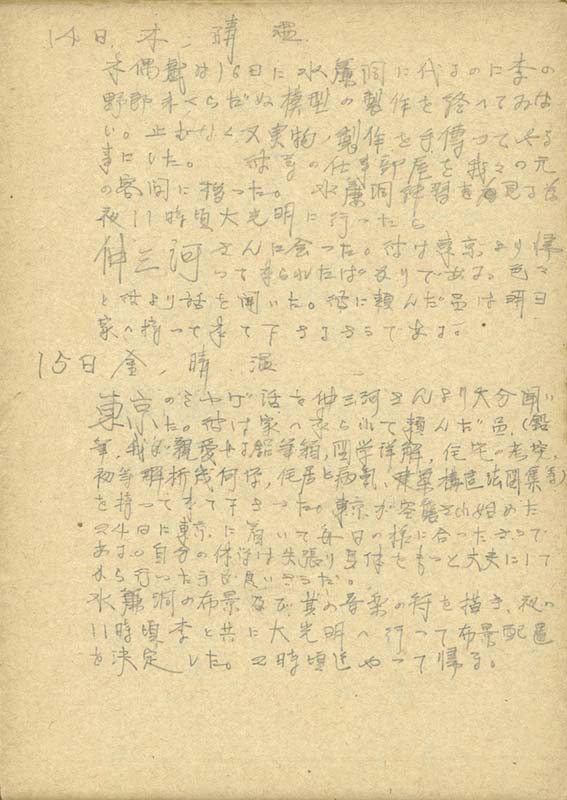 14日、木、晴 温
木偶戯は16日に水簾洞に代るのに李の
野郎未くらだぬ模型の製作を終へてゐな
い。止むなく又実物ノ製作を手傳つてやる
事にした。 仕事部屋を我々の元
の客間に撰つた。 水簾洞 練習を見る為
夜11時頃大光明に行つたら
仲三河さんに会つた。彼は東京より帰
つて来られたばかりである。色々
と彼より話を聞いた。彼に頼んだ品は明日
家へ持つて来て下さるさうである。
15日 金、晴 温
東京のみやげ話を仲三河さんより大分聞い
いた。彼は家へ来られて頼んだ品(鉛
筆、我が親愛せる鉛筆箱、図学詳解、住宅の
初等解析幾何学、住居と病気、建築構造法図集等)
を持つて来て下さつた。東京が空襲され始めた
24日に東京に着いて毎日の様に合つたさうで
ある。自分の休学は矢張り身体をもつと丈夫にして
から行つた方が良いさうだ。
水簾洞の布景及び其の音楽の符を描き、夜の
11時頃李と共に大光明へ行つて布景配置
を決定した。2時頃迄やつて帰る。